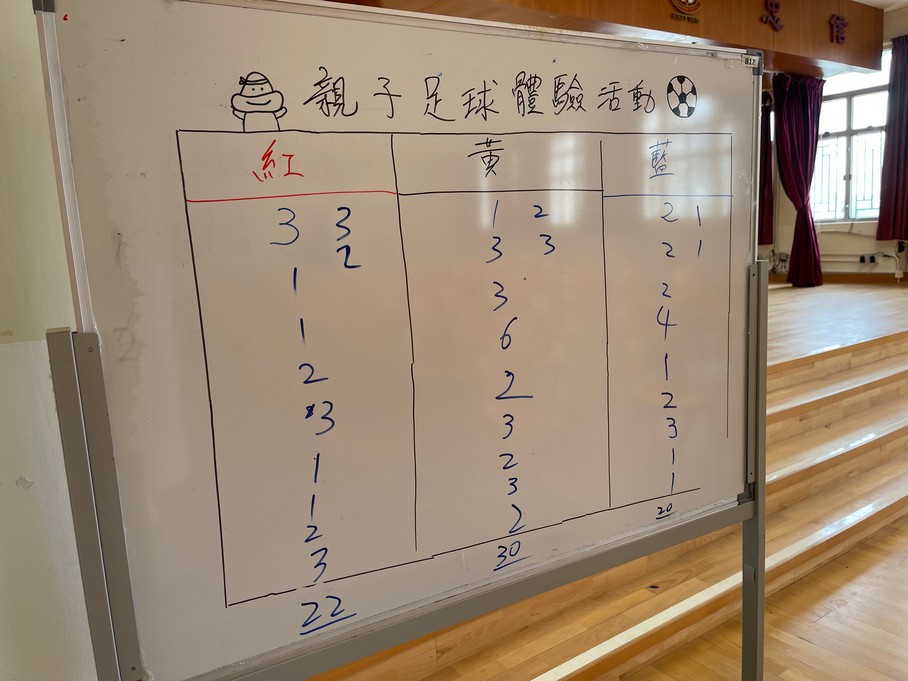 忠 信
B12
親子足球體驗活動
紅 黃 藍
3 3 1 2 2 1
2 3 3 2 1
1 3 2
1 6 4
2 2 1
3 3 2
1 2 3
1 3 1
2 2 1
3 30 20
22